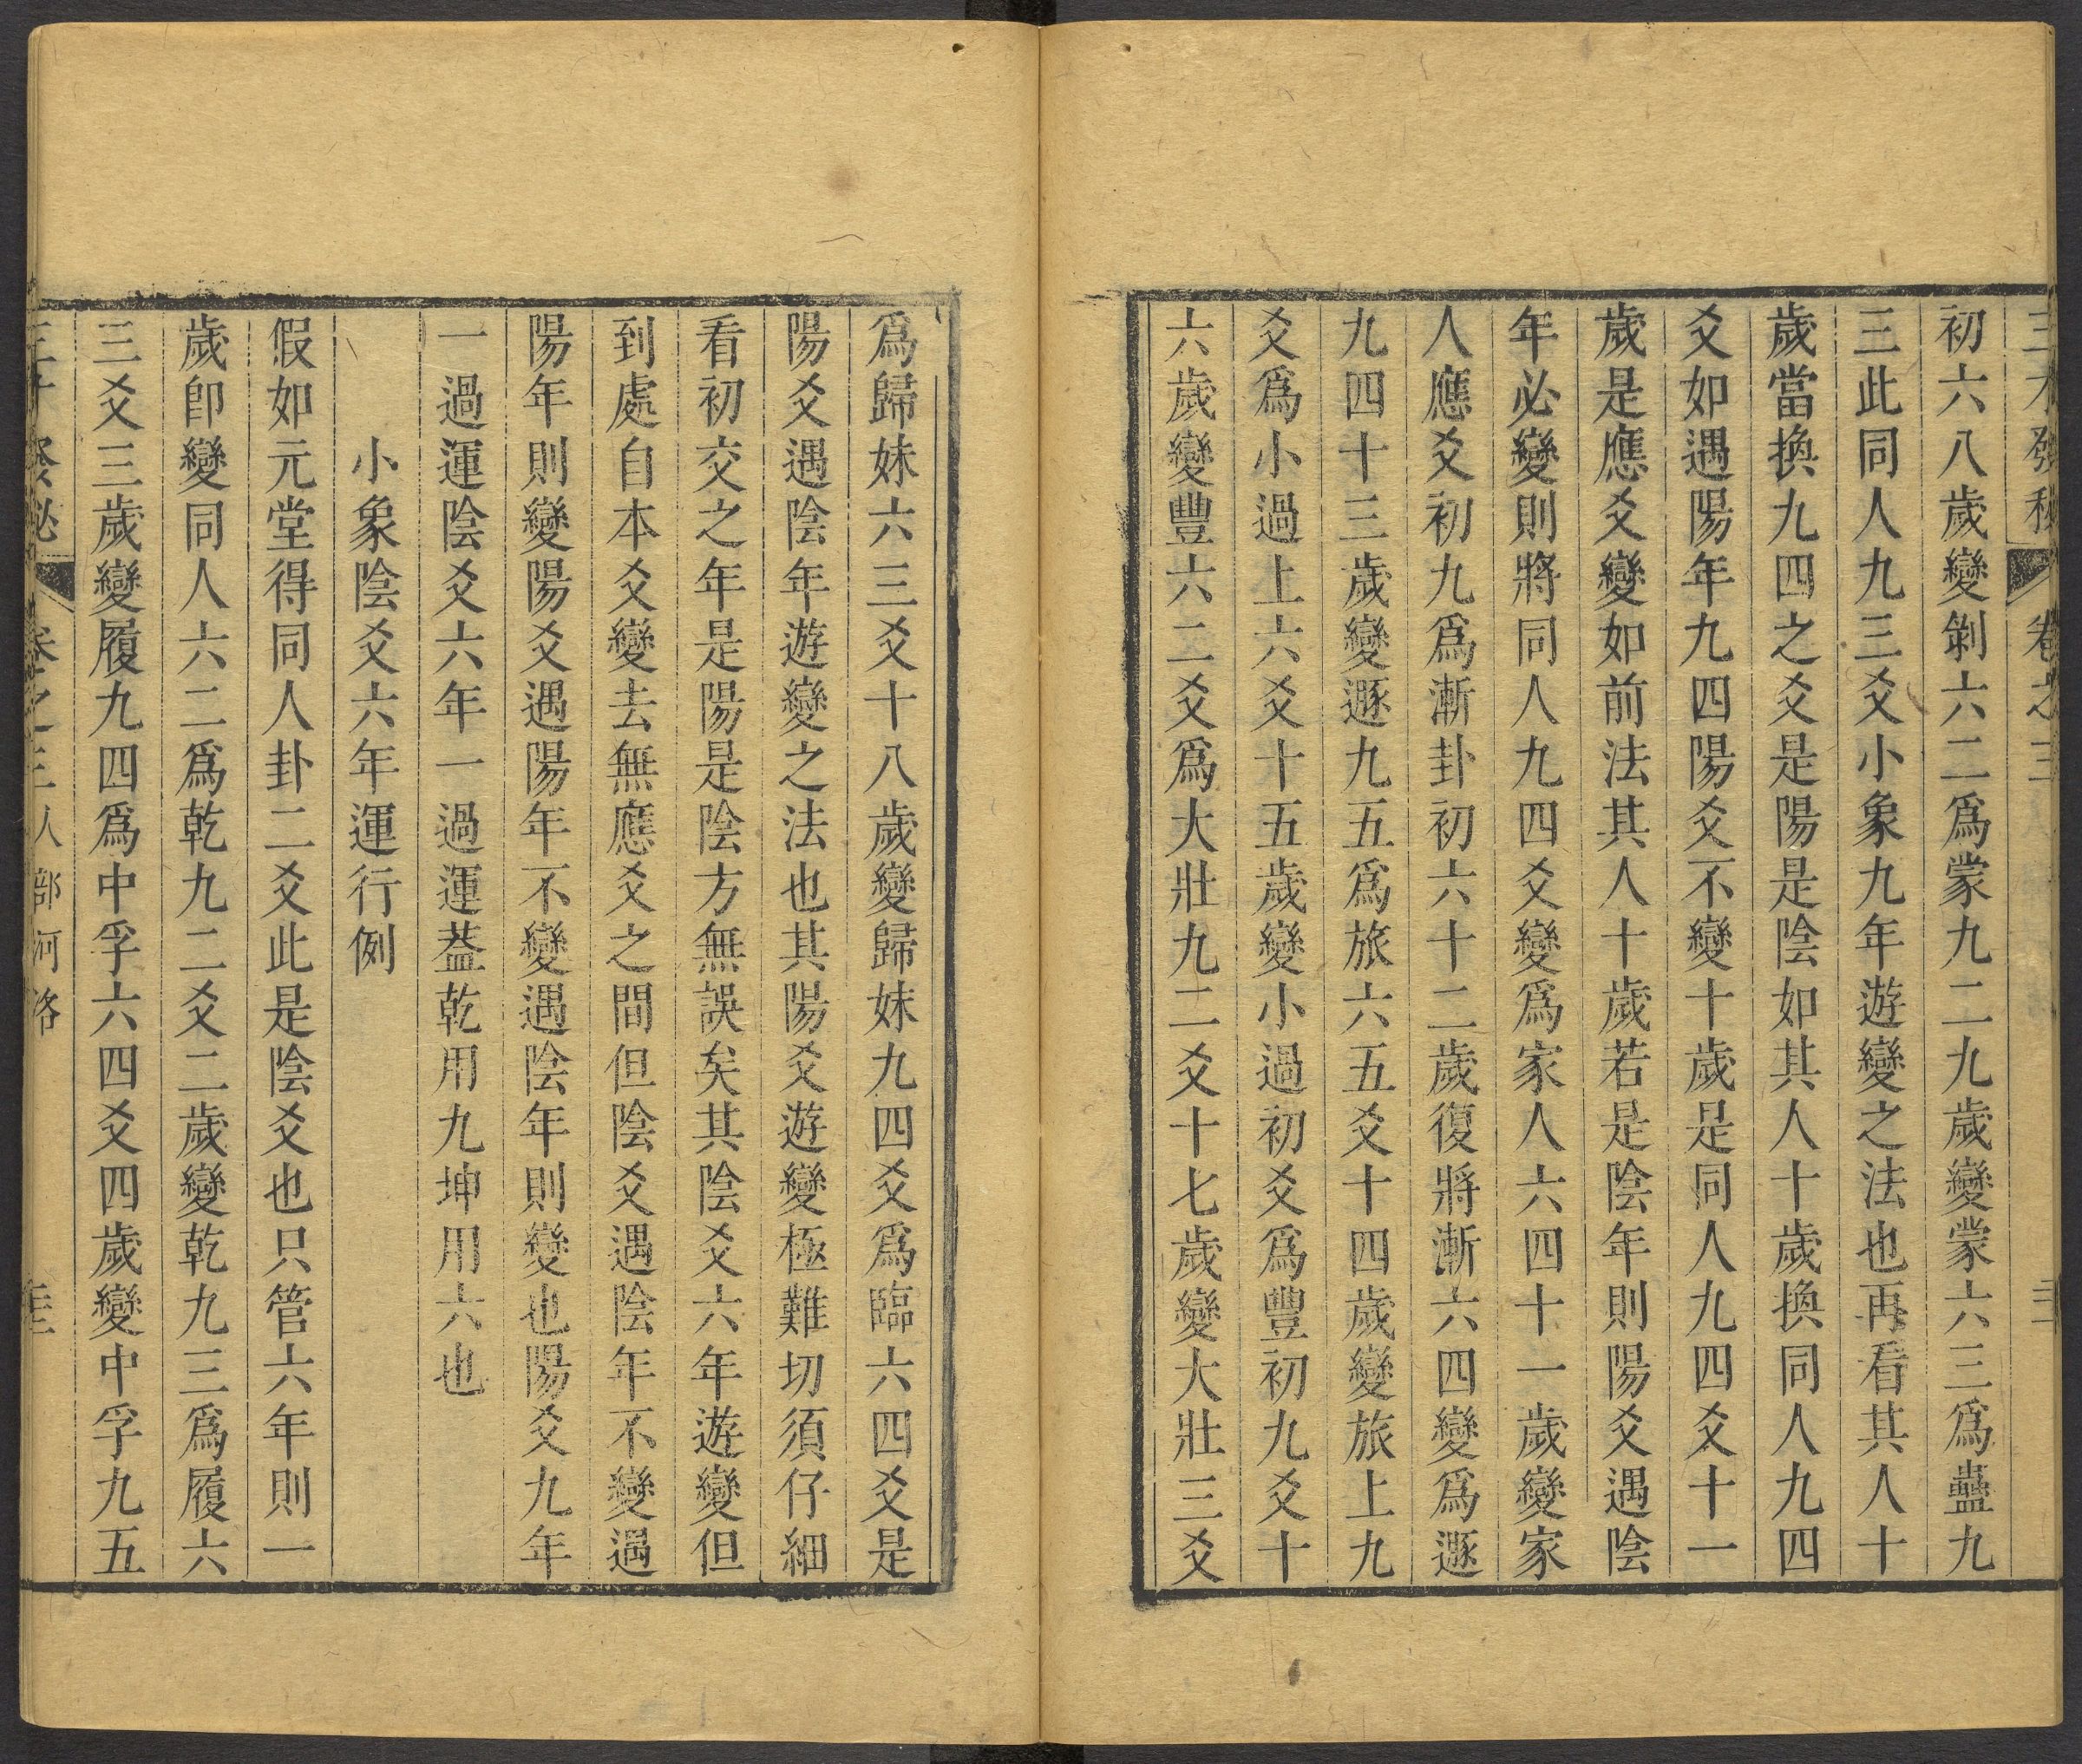 三才發秘 卷之三
初六八歲變剝六二爲蒙九二九歲變蒙六三爲蠱九
三此同人九三爻小象九年遊變之法也再看其人十
歲當換九四之爻是陽是陰如其人十歲換同人九四
爻如遇陽年九四陽爻不變十歲是同人九四爻十一
歲是應爻變如前法其人十歲若是陰年則陽爻遇陰
年必變則將同人九四爻變爲家人六四十一歲變家
人應爻初九爲漸卦初六十二歲復將漸六四變爲遯
九四十三歲變遯九五爲旅六五爻十四歲變旅上九
爻爲小過上六爻十五歲變小過初爻爲豐初九爻十
六歲變豐六二爻爲大壯九二爻十七歲變大壯三爻
爲歸妹六三爻十八歲變歸妹九四爻爲臨六四爻是
陽爻遇陰年遊變之法也其陽爻遊變極難切須仔細
看初交之年是陽是陰方無誤矣其陰爻六年遊變但
到處自本爻變去無應爻之間但陰爻遇陰年不變遇
陽年則變陽爻遇陽年不變遇陰年則變也陽爻九年
一過運陰爻六年一過運葢乾用九坤用六也
小象陰爻六年運行例
假如元堂得同人卦二爻此是陰爻也只管六年則一
歲卽變同人六二爲乾九二爻二歲變乾九三爲履六
三爻三歲變履九四爲中孚六四爻四歲變中孚九五
卷之三人部河洛